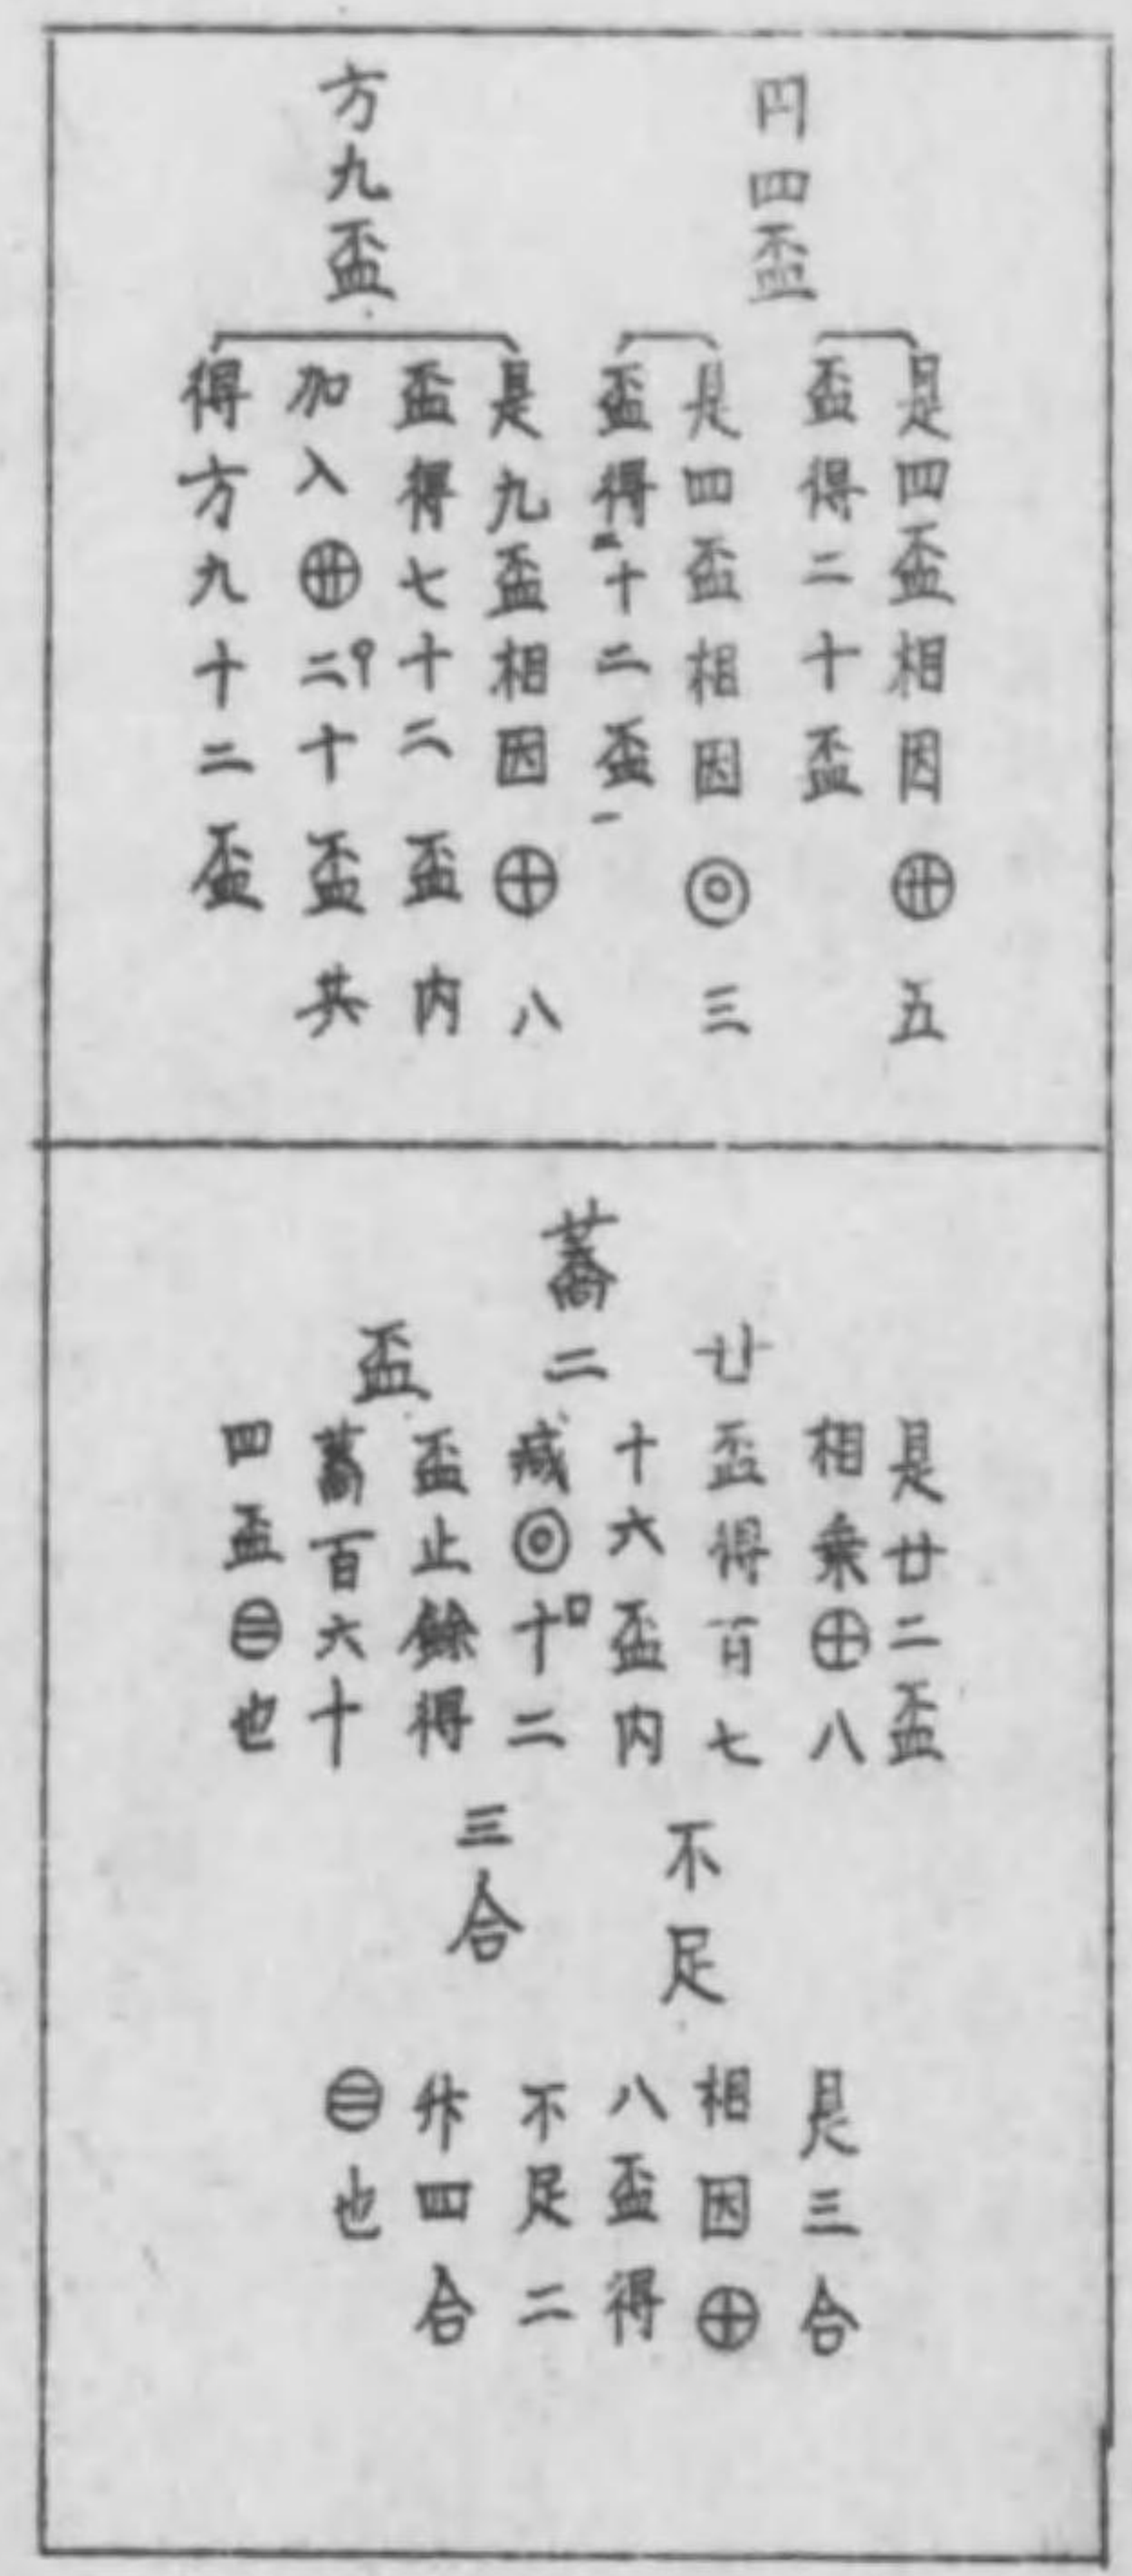 円四盃
是四盃相因⊕五
盃得二十盃
是四盃相因◎三
盃得十二盃
方九盃
是九盃相因⊕八
盃得七十二盃内
加入⊕二十盃共
得方九十二盃
廿二盃
是廿二盃
相乗⊕八
盃得百七
十六盃内
減◎十二
盃止餘得
蒿百六十
四盃㊂也
不足
三合
是三合
相因⊕
八盃得
不足二
升四合
㊂也